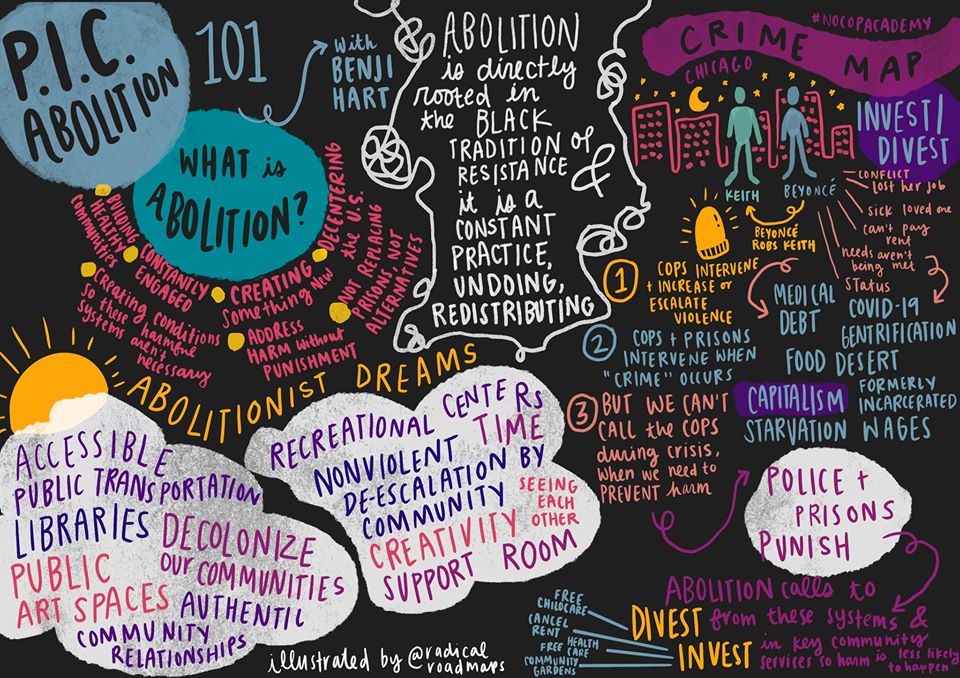 P.I.C.
ABOLITION
101
with
BENJI
HART
WHAT is
ABOLITION?
BUILDING
HEALTHY
communities
CONSTANTLY
ENGAGED
Creating conditions
so these harmful
systems aren't
necessary
CREATING
something New
DECENTERING
the U.S.
ADDRESS
HARM without
PUNISHMENT
NOT REPLACING
PRISONS, NOT
ALTERNATIVES
ABOLITION
is directly
rooted in
the BLACK
TRADITION OF
RESISTANCE
&
it is a
CONSTANT
PRACTICE,
UNDOING,
REDISTRIBUTING
ABOLITIONIST DREAMS
ACCESSIBLE
PUBLIC TRANSPORTATION
LIBRARIES
DECOLONIZE
OUR COMMUNITIES
PUBLIC
ART SPACES
AUTHENTIC
COMMUNITY
RELATIONSHIPS
RECREATIONAL CENTERS
NONVIOLENT TIME
DE-ESCALATION BY
COMMUNITY
SEEING
EACH
OTHER
CREATIVITY
SUPPORT ROOM
illustrated by @radical
roadmaps
#NOCOPACADEMY
CRIME MAP
CHICAGO
INVEST/
DIVEST
KEITH
BEYONCÉ
BEYONCÉ
ROBS KEITH
CONFLICT
lost her job
sick loved one
can't pay
rent
needs aren't
being met
status
1
COPS INTERVENE
+ INCREASE or
ESCALATE
VIOLENCE
2
COPS + PRISONS
INTERVENE WHEN
"CRIME" OCCURS
3
BUT WE CAN'T
CALL the COPS
during CRISIS,
when we need to
PREVENT harm
MEDICAL
DEBT
COVID-19
GENTRIFICATION
FOOD DESERT
CAPITALISM
FORMERLY
INCARCERATED
STARVATION WAGES
POLICE +
PRISONS
PUNISH
ABOLITION calls to
DIVEST from these systems &
INVEST in key community
services so harm is less likely
to happen
FREE
CHILDCARE
CANCEL
RENT
FREE HEALTH
CARE
COMMUNITY
GARDENS